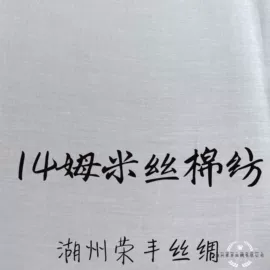 14姆米丝棉纺
湖州荣丰丝绸